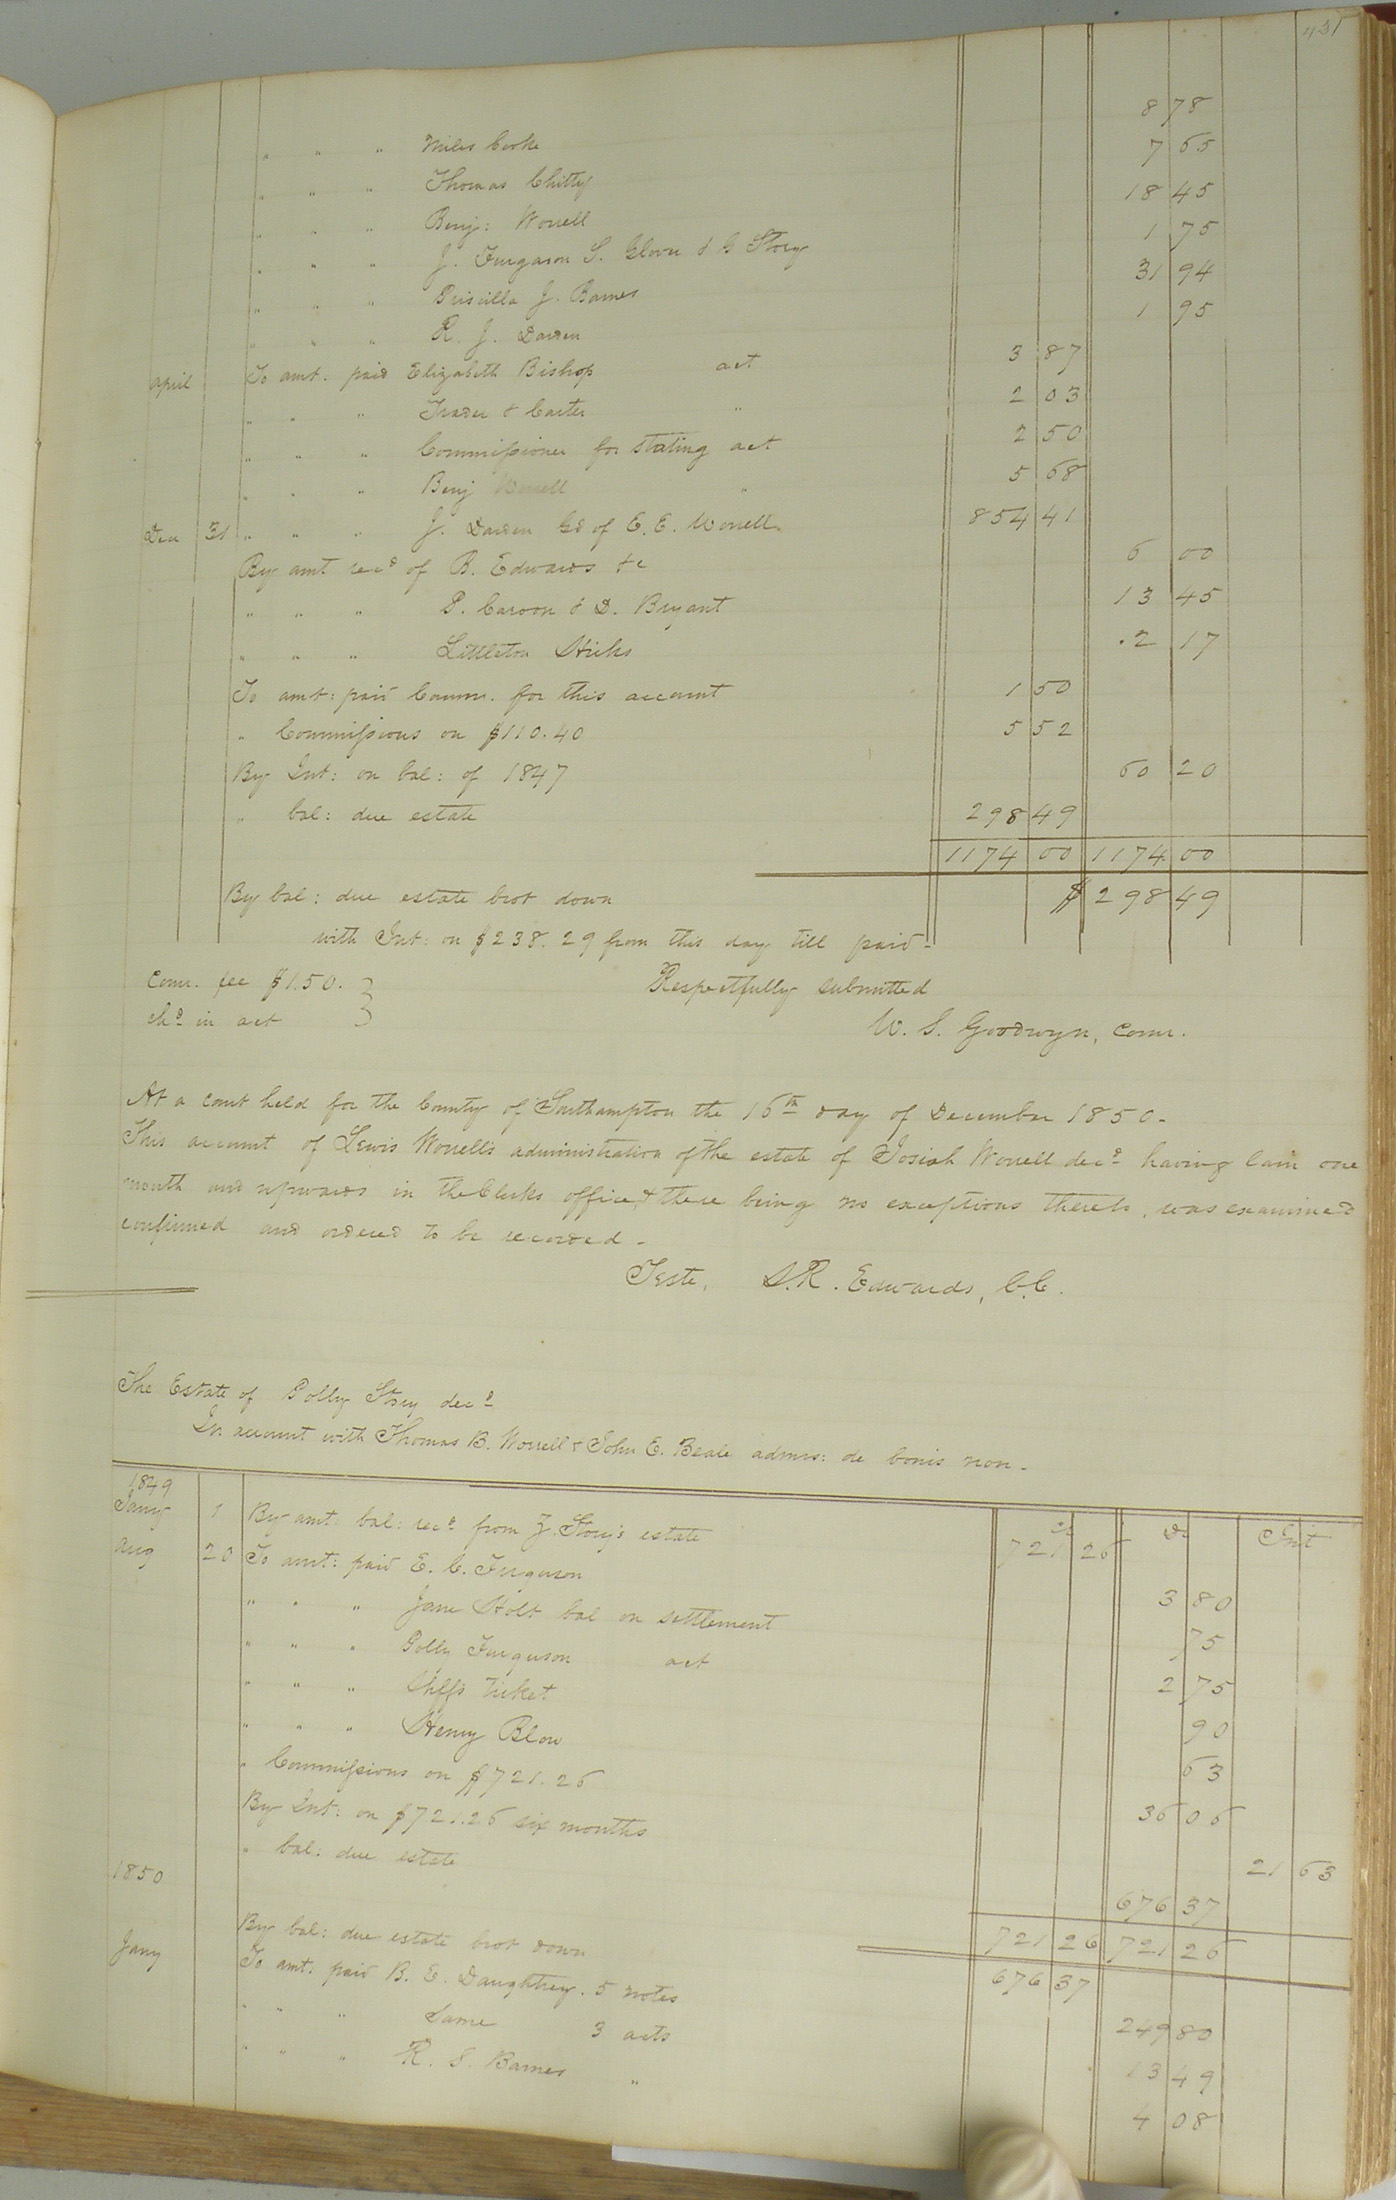 431
" " " Miles Cooke 8 78
" " " Thomas Chitty 7 65
" " " Benj: Worrell 18 45
" " " J. Furgason S. Glover & G Story 1 75
" " " Priscilla J. Barnes 31 94
" " " R. J. Darden 1 95
april To amt. paid Elizabeth Bishop act 3 87
" " " Trader & Carter " 2 03
" " " Commissioner for stating act 2 50
" " " Benj Worrell " 5 68
Dec 31 " " " J. Darden Gd of E. E. Worrell. 854 41
By amt recd of B. Edwards &c 6 00
" " " P. Caroon & D. Bryant 13 45
" " " Littleton Hicks 2 17
To amt: paid Comm. for this account 1 50
" Commissions on $110.40 5 52
By Int: on bal: of 1847 60 20
" bal: due estate 298 49
1174 00 1174 00
By bal: due estate brot down $298 49
with Int: on $238.29 from this day till paid-
Comr. fee $1.50. }
chd in act }
Respectfully submitted
W. S. Goodwyn, Comr.
At a court held for the County of Southampton the 16th day of December 1850-
This account of Lewis Worrell's administration of the estate of Josiah Worrell decd having lain one
month and upwards in the Clerks office, & there being no exceptions thereto, was examined
confirmed and ordered to be recorded-
Teste, L.R. Edwards, C.C.
The Estate of Polly Story decd
In account with Thomas B. Worrell & John E. Beale admrs: de bonis non-
1849 Cr Dr Int
Jany 1 By amt: bal: recd from Z. Story's estate 721 26
Aug 20 To amt: paid E. C. Ferguson 3 80
" " " Jane Holt bal on settlement 75
" " " Polly Ferguson act 2 75
" " " Shffs Ticket 90
" " " Henry Blow 63
" Commissions on $721.26 36 06
By Int: on $721.26 six months 21 63
" bal: due estate 676 37
721 26 721 26
1850
By bal: due estate brot down 676 37
Jany To amt. paid B. E. Daughtrey. 5 notes 249 80
" " " Same 3 acts 13 49
" " " R. S. Barnes " 4 08